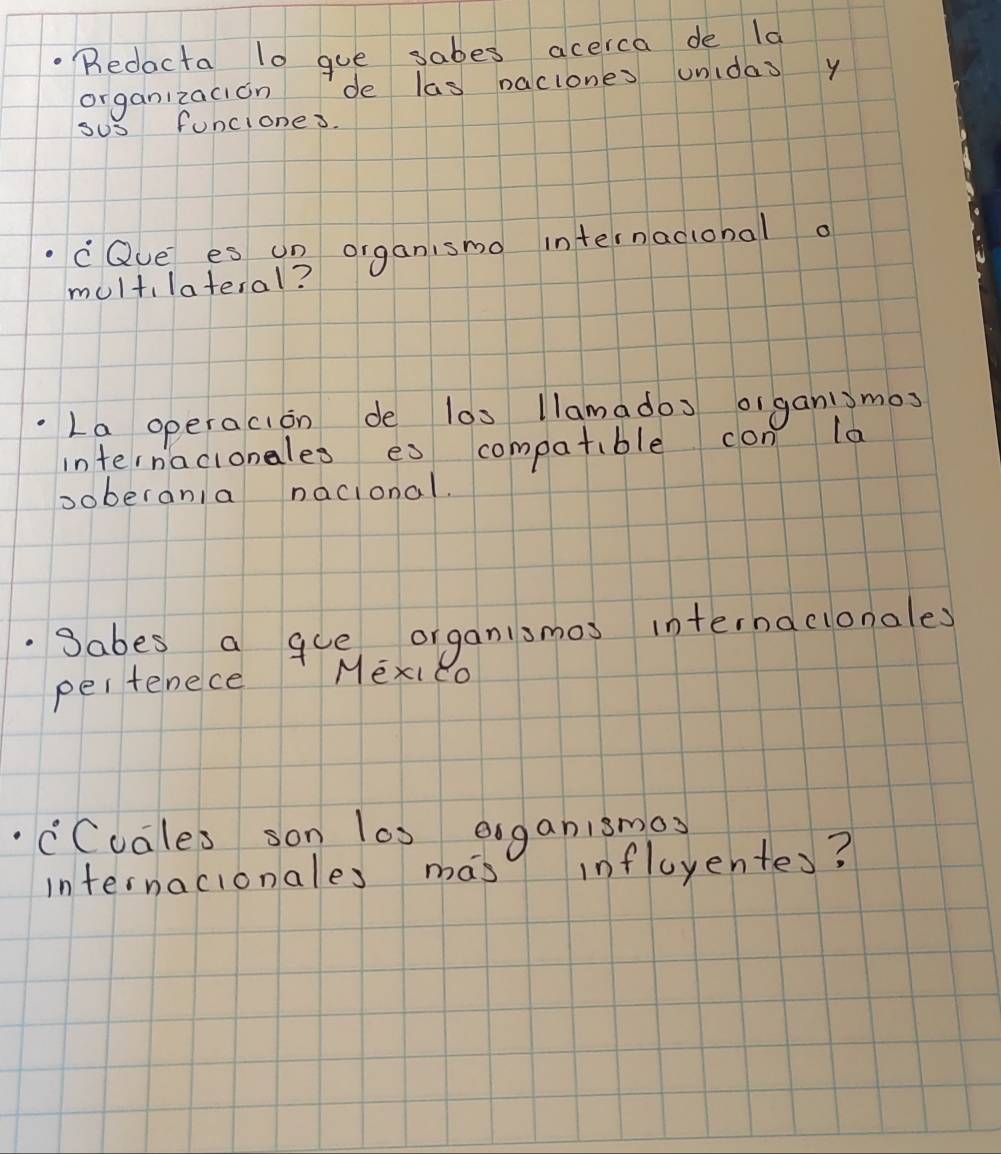 • Redacta lo que sabes acerca de la
organización de las naciones unidas y
sus funciones.
• ¿Qué es un organismo internacional o
multilateral?
• La operación de los llamados organismos
internacionales es compatible con la
soberania nacional.
• Sabes a que organismos internacionales
pertenece México
• ¿Cuáles son los organismos
internacionales más influyentes?